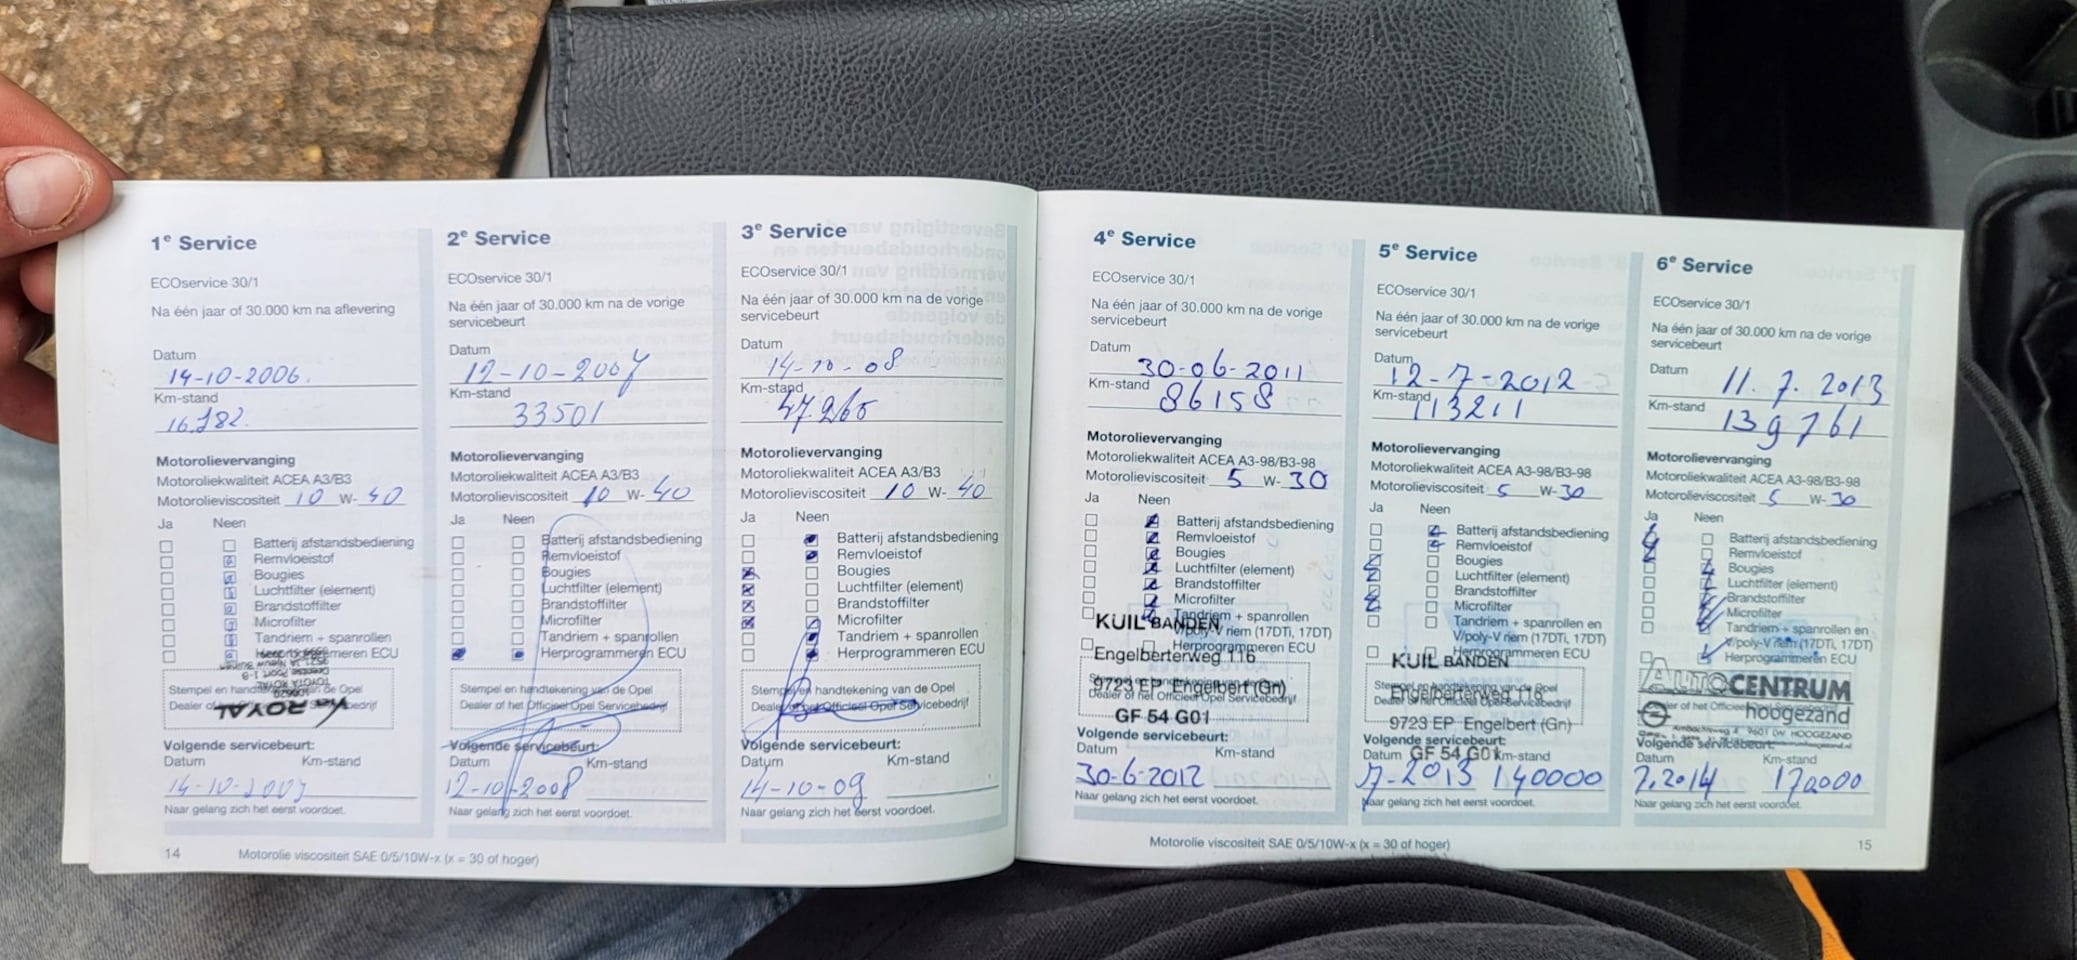 1e Service
ECOservice 30/1
Na één jaar of 30.000 km na aflevering
Datum
14-10-2006.
Km-stand
16.782.
Motorolievervanging
Motoroliekwaliteit ACEA A3/B3
Motorolieviscositeit 10 W- 40
Ja Neen
Batterij afstandsbediening
Remvloeistof
Bougies
Luchtfilter (element)
Brandstoffilter
Microfilter
Tandriem + spanrollen
Herprogrammeren ECU
Stempel en handtekening van de Opel
Dealer of het Officieel Opel Servicebedrijf
ROYAL
Volgende servicebeurt:
Datum Km-stand
14-10-2007
Naar gelang zich het eerst voordoet.
14
2e Service
ECOservice 30/1
Na één jaar of 30.000 km na de vorige
servicebeurt
Datum
12-10-2007
Km-stand
33501
Motorolievervanging
Motoroliekwaliteit ACEA A3/B3
Motorolieviscositeit 10 W- 40
Ja Neen
Batterij afstandsbediening
Remvloeistof
Bougies
Luchtfilter (element)
Brandstoffilter
Microfilter
Tandriem + spanrollen
Herprogrammeren ECU
Stempel en handtekening van de Opel
Dealer of het Officieel Opel Servicebedrijf
Volgende servicebeurt:
Datum Km-stand
12-10-2008
Naar gelang zich het eerst voordoet.
Motorolie viscositeit SAE 0/5/10W-x (x = 30 of hoger)
3e Service
ECOservice 30/1
Na één jaar of 30.000 km na de vorige
servicebeurt
Datum
14-10-08
Km-stand
47.266
Motorolievervanging
Motoroliekwaliteit ACEA A3/B3
Motorolieviscositeit 10 W- 40
Ja Neen
Batterij afstandsbediening
Remvloeistof
Bougies
Luchtfilter (element)
Brandstoffilter
Microfilter
Tandriem + spanrollen
Herprogrammeren ECU
Stempel en handtekening van de Opel
Dealer of het Officieel Opel Servicebedrijf
Volgende servicebeurt:
Datum Km-stand
14-10-09
Naar gelang zich het eerst voordoet.
4e Service
ECOservice 30/1
Na één jaar of 30.000 km na de vorige
servicebeurt
Datum
30-06-2011
Km-stand
86158
Motorolievervanging
Motoroliekwaliteit ACEA A3-98/B3-98
Motorolieviscositeit 5 W- 30
Ja Neen
Batterij afstandsbediening
Remvloeistof
Bougies
Luchtfilter (element)
Brandstoffilter
Microfilter
Tandriem + spanrollen
V/poly-V riem (17DTi, 17DT)
Herprogrammeren ECU
KUIL BANDEN
Engelberterweg 116
9723 EP Engelbert (Gn)
GF 54 G01
Volgende servicebeurt:
Datum Km-stand
30-6-2012
Naar gelang zich het eerst voordoet.
5e Service
ECOservice 30/1
Na één jaar of 30.000 km na de vorige
servicebeurt
Datum
12-7-2012
Km-stand
113211
Motorolievervanging
Motoroliekwaliteit ACEA A3-98/B3-98
Motorolieviscositeit 5 W- 30
Ja Neen
Batterij afstandsbediening
Remvloeistof
Bougies
Luchtfilter (element)
Brandstoffilter
Microfilter
Tandriem + spanrollen en
V/poly-V riem (17DTi, 17DT)
Herprogrammeren ECU
KUIL BANDEN
Engelberterweg 116
9723 EP Engelbert (Gn)
GF 54 G01
Volgende servicebeurt:
Datum Km-stand
7-2013 140000
Naar gelang zich het eerst voordoet.
Motorolie viscositeit SAE 0/5/10W-x (x = 30 of hoger)
6e Service
ECOservice 30/1
Na één jaar of 30.000 km na de vorige
servicebeurt
Datum
11.7.2013
Km-stand
139761
Motorolievervanging
Motoroliekwaliteit ACEA A3-98/B3-98
Motorolieviscositeit 5 W- 30
Ja Neen
Batterij afstandsbediening
Remvloeistof
Bougies
Luchtfilter (element)
Brandstoffilter
Microfilter
Tandriem + spanrollen en
V/poly-V riem (17DTi, 17DT)
Herprogrammeren ECU
AUTOCENTRUM
hoogezand
9601 LW HOOGEZAND
Volgende servicebeurt:
Datum Km-stand
7.2014 170000
Naar gelang zich het eerst voordoet.
15